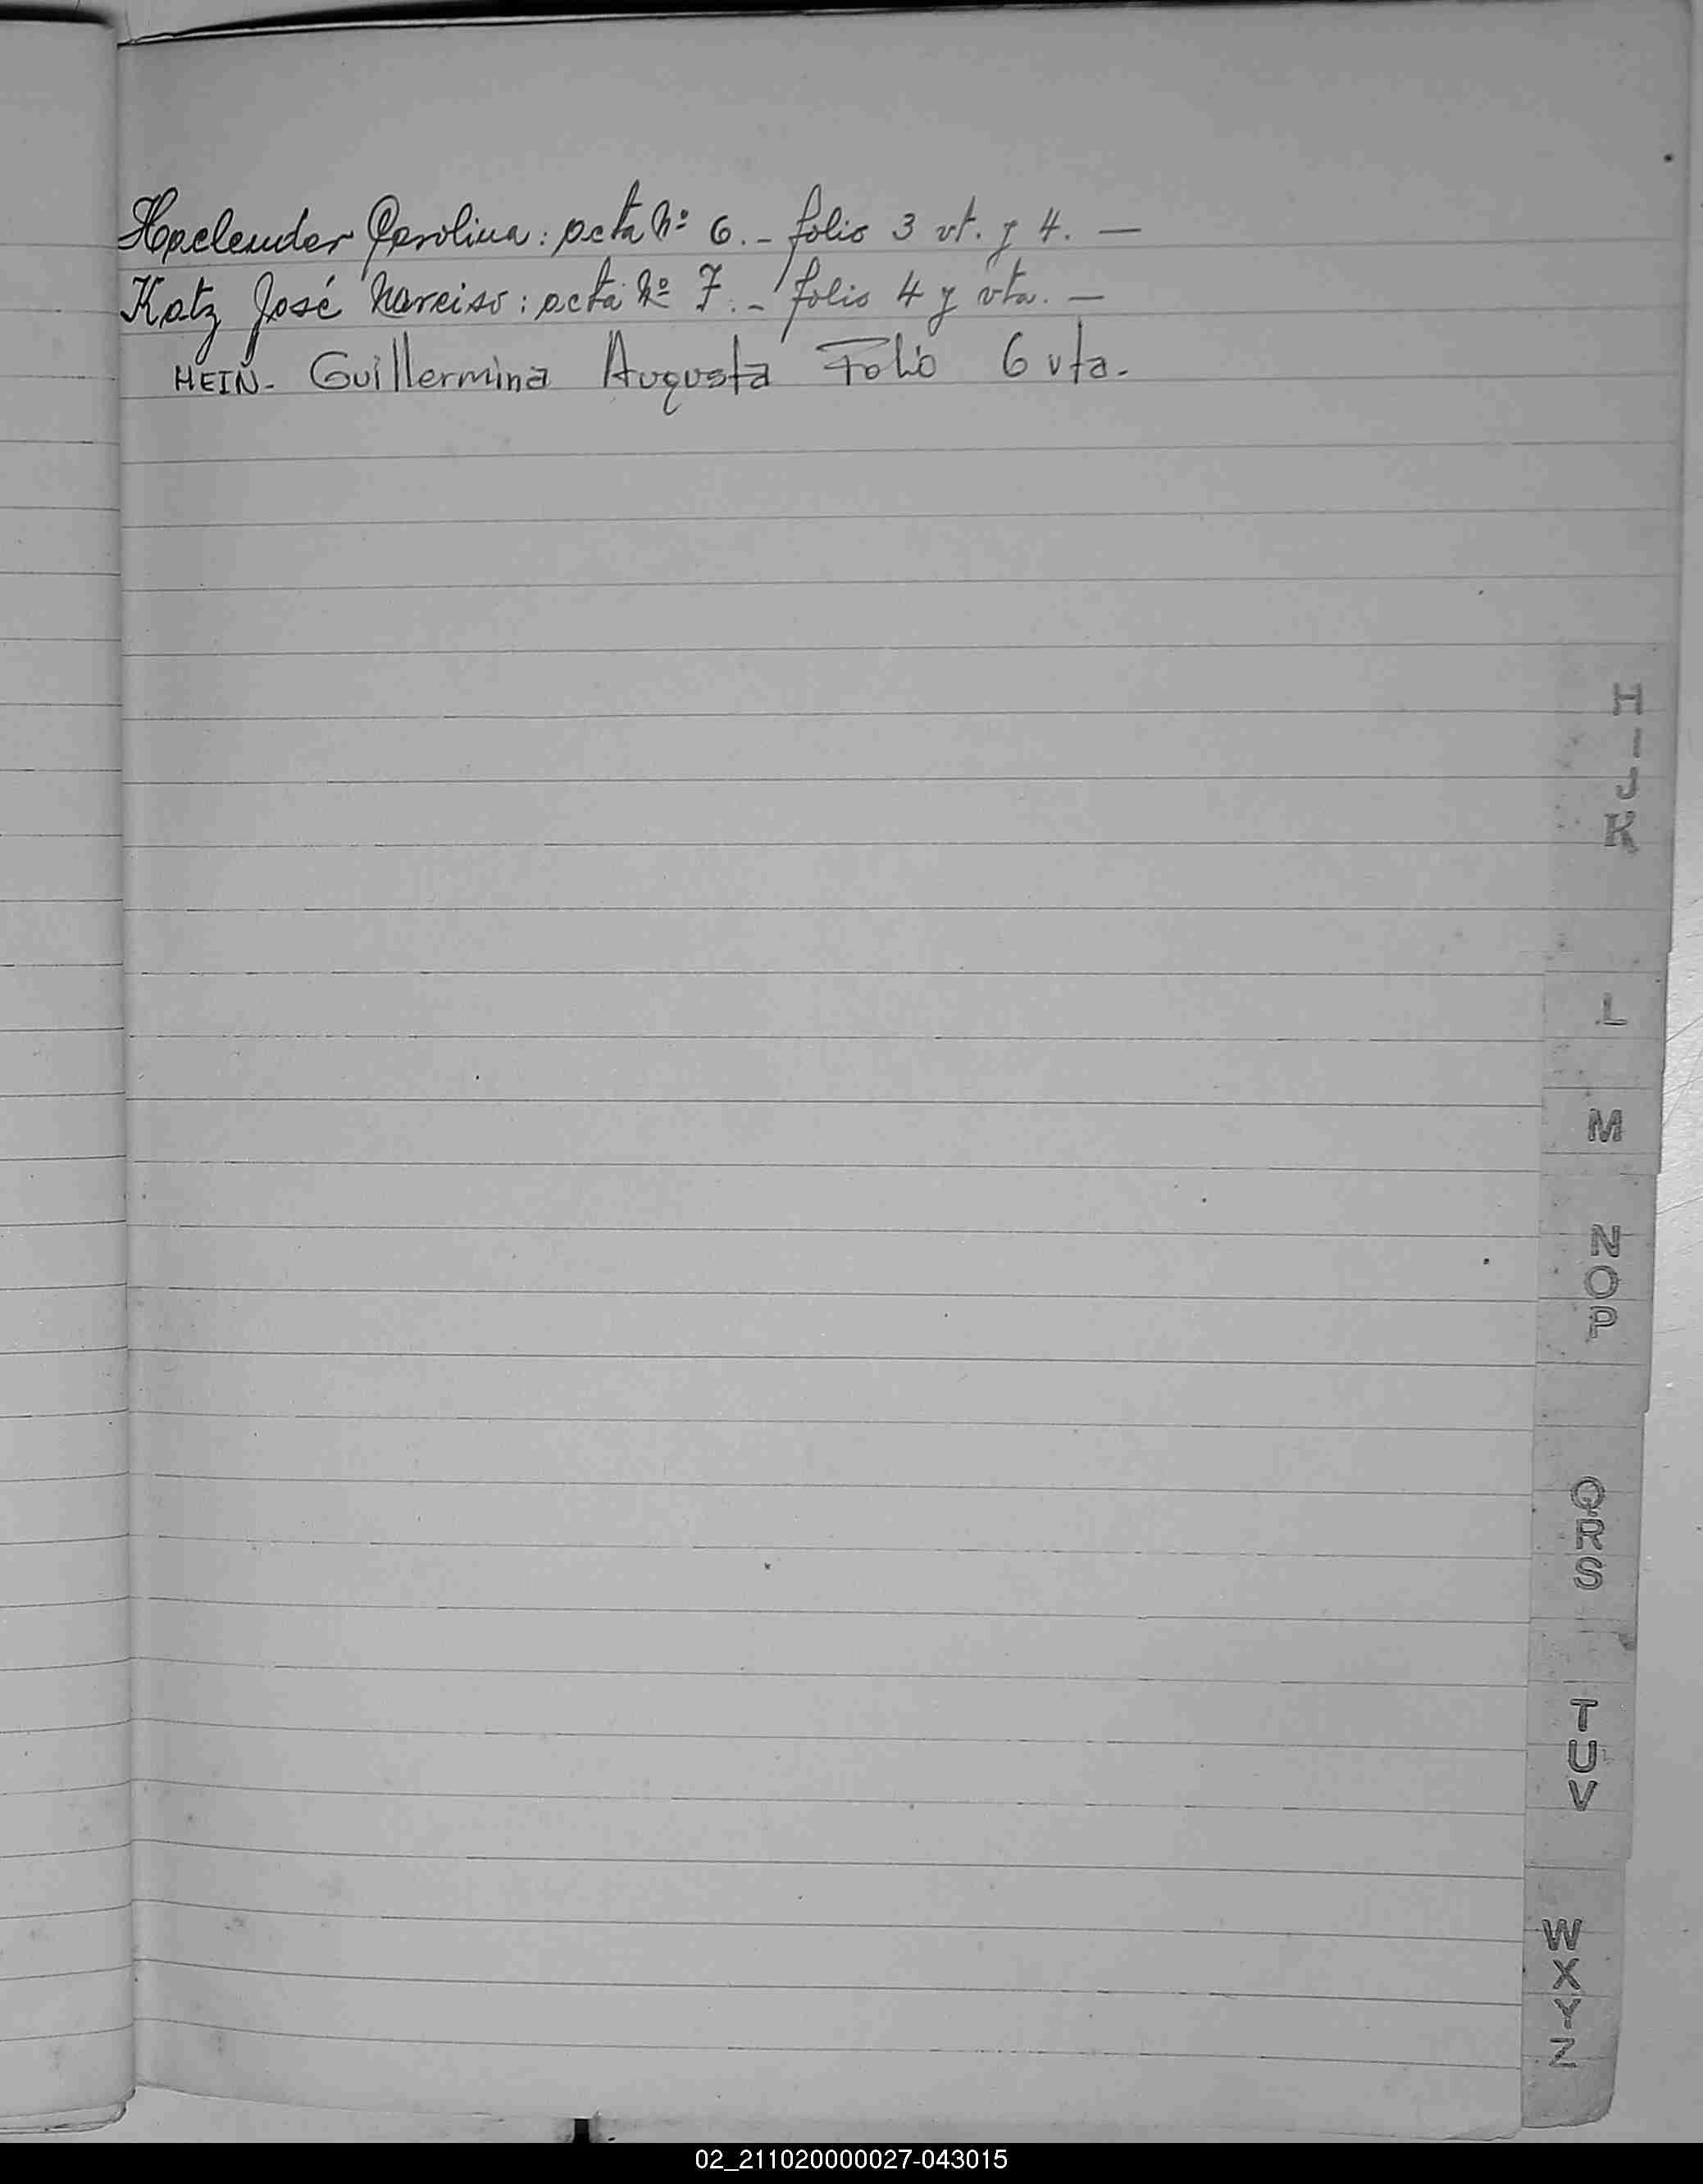 Haelender Carolina: acta Nº 6.- folio 3 vt. y 4. —
Katz José Narciso: acta Nº 7.- folio 4 y vta. —
HEIN- Guillermina Augusta Folio 6 vta.
H
I
J
K
L
M
N
O
P
Q
R
S
T
U
V
W
X
Y
Z
02_211020000027-043015